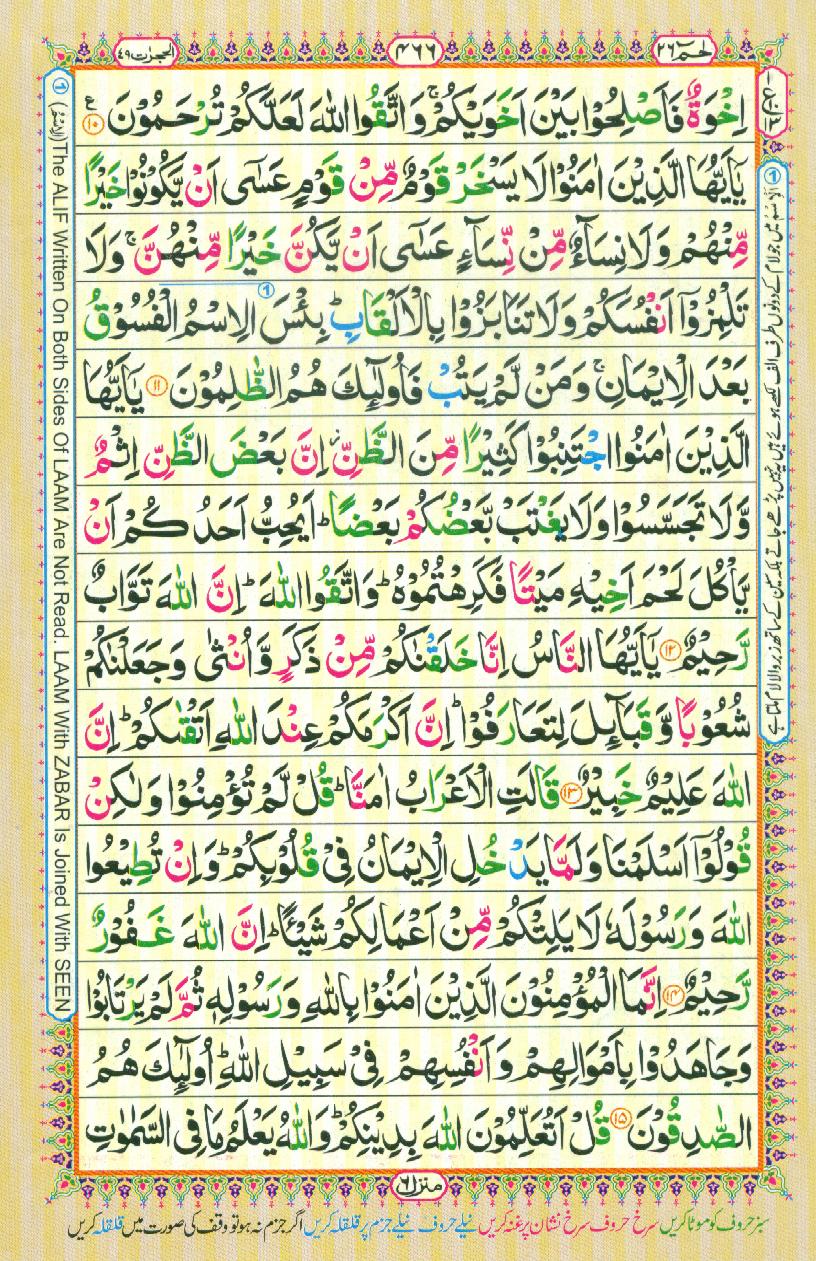 الحجرات ٤٩
٤٦٦
حٰمٓ ٢٦
اِخْوَةٌ فَاَصْلِحُوْا بَيْنَ اَخَوَيْكُمْ ۚ وَ اتَّقُوا اللّٰهَ لَعَلَّكُمْ تُرْحَمُوْنَ ۧ ﴿١٠﴾
يٰۤاَيُّهَا الَّذِيْنَ اٰمَنُوْا لَا يَسْخَرْ قَوْمٌ مِّنْ قَوْمٍ عَسٰۤى اَنْ يَّكُوْنُوْا خَيْرًا
مِّنْهُمْ وَ لَا نِسَآءٌ مِّنْ نِّسَآءٍ عَسٰۤى اَنْ يَّكُنَّ خَيْرًا مِّنْهُنَّ ۚ وَ لَا
تَلْمِزُوْۤا اَنْفُسَكُمْ وَ لَا تَنَابَزُوْا بِالْاَلْقَابِ ؕ بِئْسَ الِاسْمُ الْفُسُوْقُ
بَعْدَ الْاِيْمَانِ ۚ وَ مَنْ لَّمْ يَتُبْ فَاُولٰٓئِكَ هُمُ الظّٰلِمُوْنَ ﴿١١﴾ يٰۤاَيُّهَا
الَّذِيْنَ اٰمَنُوا اجْتَنِبُوْا كَثِيْرًا مِّنَ الظَّنِّ ؗ اِنَّ بَعْضَ الظَّنِّ اِثْمٌ
وَّ لَا تَجَسَّسُوْا وَ لَا يَغْتَبْ بَّعْضُكُمْ بَعْضًا ؕ اَيُحِبُّ اَحَدُكُمْ اَنْ
يَّاْكُلَ لَحْمَ اَخِيْهِ مَيْتًا فَكَرِهْتُمُوْهُ ؕ وَ اتَّقُوا اللّٰهَ ؕ اِنَّ اللّٰهَ تَوَّابٌ
رَّحِيْمٌ ﴿١٢﴾ يٰۤاَيُّهَا النَّاسُ اِنَّا خَلَقْنٰكُمْ مِّنْ ذَكَرٍ وَّ اُنْثٰى وَ جَعَلْنٰكُمْ
شُعُوْبًا وَّ قَبَآئِلَ لِتَعَارَفُوْا ؕ اِنَّ اَكْرَمَكُمْ عِنْدَ اللّٰهِ اَتْقٰىكُمْ ؕ اِنَّ
اللّٰهَ عَلِيْمٌ خَبِيْرٌ ﴿١٣﴾ قَالَتِ الْاَعْرَابُ اٰمَنَّا ؕ قُلْ لَّمْ تُؤْمِنُوْا وَ لٰكِنْ
قُوْلُوْۤا اَسْلَمْنَا وَ لَمَّا يَدْخُلِ الْاِيْمَانُ فِيْ قُلُوْبِكُمْ ؕ وَ اِنْ تُطِيْعُوا
اللّٰهَ وَ رَسُوْلَهٗ لَا يَلِتْكُمْ مِّنْ اَعْمَالِكُمْ شَيْـًٔا ؕ اِنَّ اللّٰهَ غَفُوْرٌ
رَّحِيْمٌ ﴿١٤﴾ اِنَّمَا الْمُؤْمِنُوْنَ الَّذِيْنَ اٰمَنُوْا بِاللّٰهِ وَ رَسُوْلِهٖ ثُمَّ لَمْ يَرْتَابُوْا
وَ جَاهَدُوْا بِاَمْوَالِهِمْ وَ اَنْفُسِهِمْ فِيْ سَبِيْلِ اللّٰهِ ؕ اُولٰٓئِكَ هُمُ
الصّٰدِقُوْنَ ﴿١٥﴾ قُلْ اَتُعَلِّمُوْنَ اللّٰهَ بِدِيْنِكُمْ ؕ وَ اللّٰهُ يَعْلَمُ مَا فِي السَّمٰوٰتِ
منزل ٦
سبز حروف کو موٹا کریں سرخ حروف سرخ نشان پر غنہ کریں نیلے حروف نیلے جزم پر قلقلہ کریں اگر جزم نہ ہو تو وقف کی صورت میں قلقلہ کریں
① (الِاسْمُ) The ALIF Written On Both Sides Of LAAM Are Not Read. LAAM With ZABAR Is Joined With SEEN
① الِاسْمُ میں جو لام کے دونوں طرف الف لکھے ہوئے ہیں یہ نہیں پڑھے جاتے بلکہ سین کے ساتھ زیر والا لام ملتا ہے